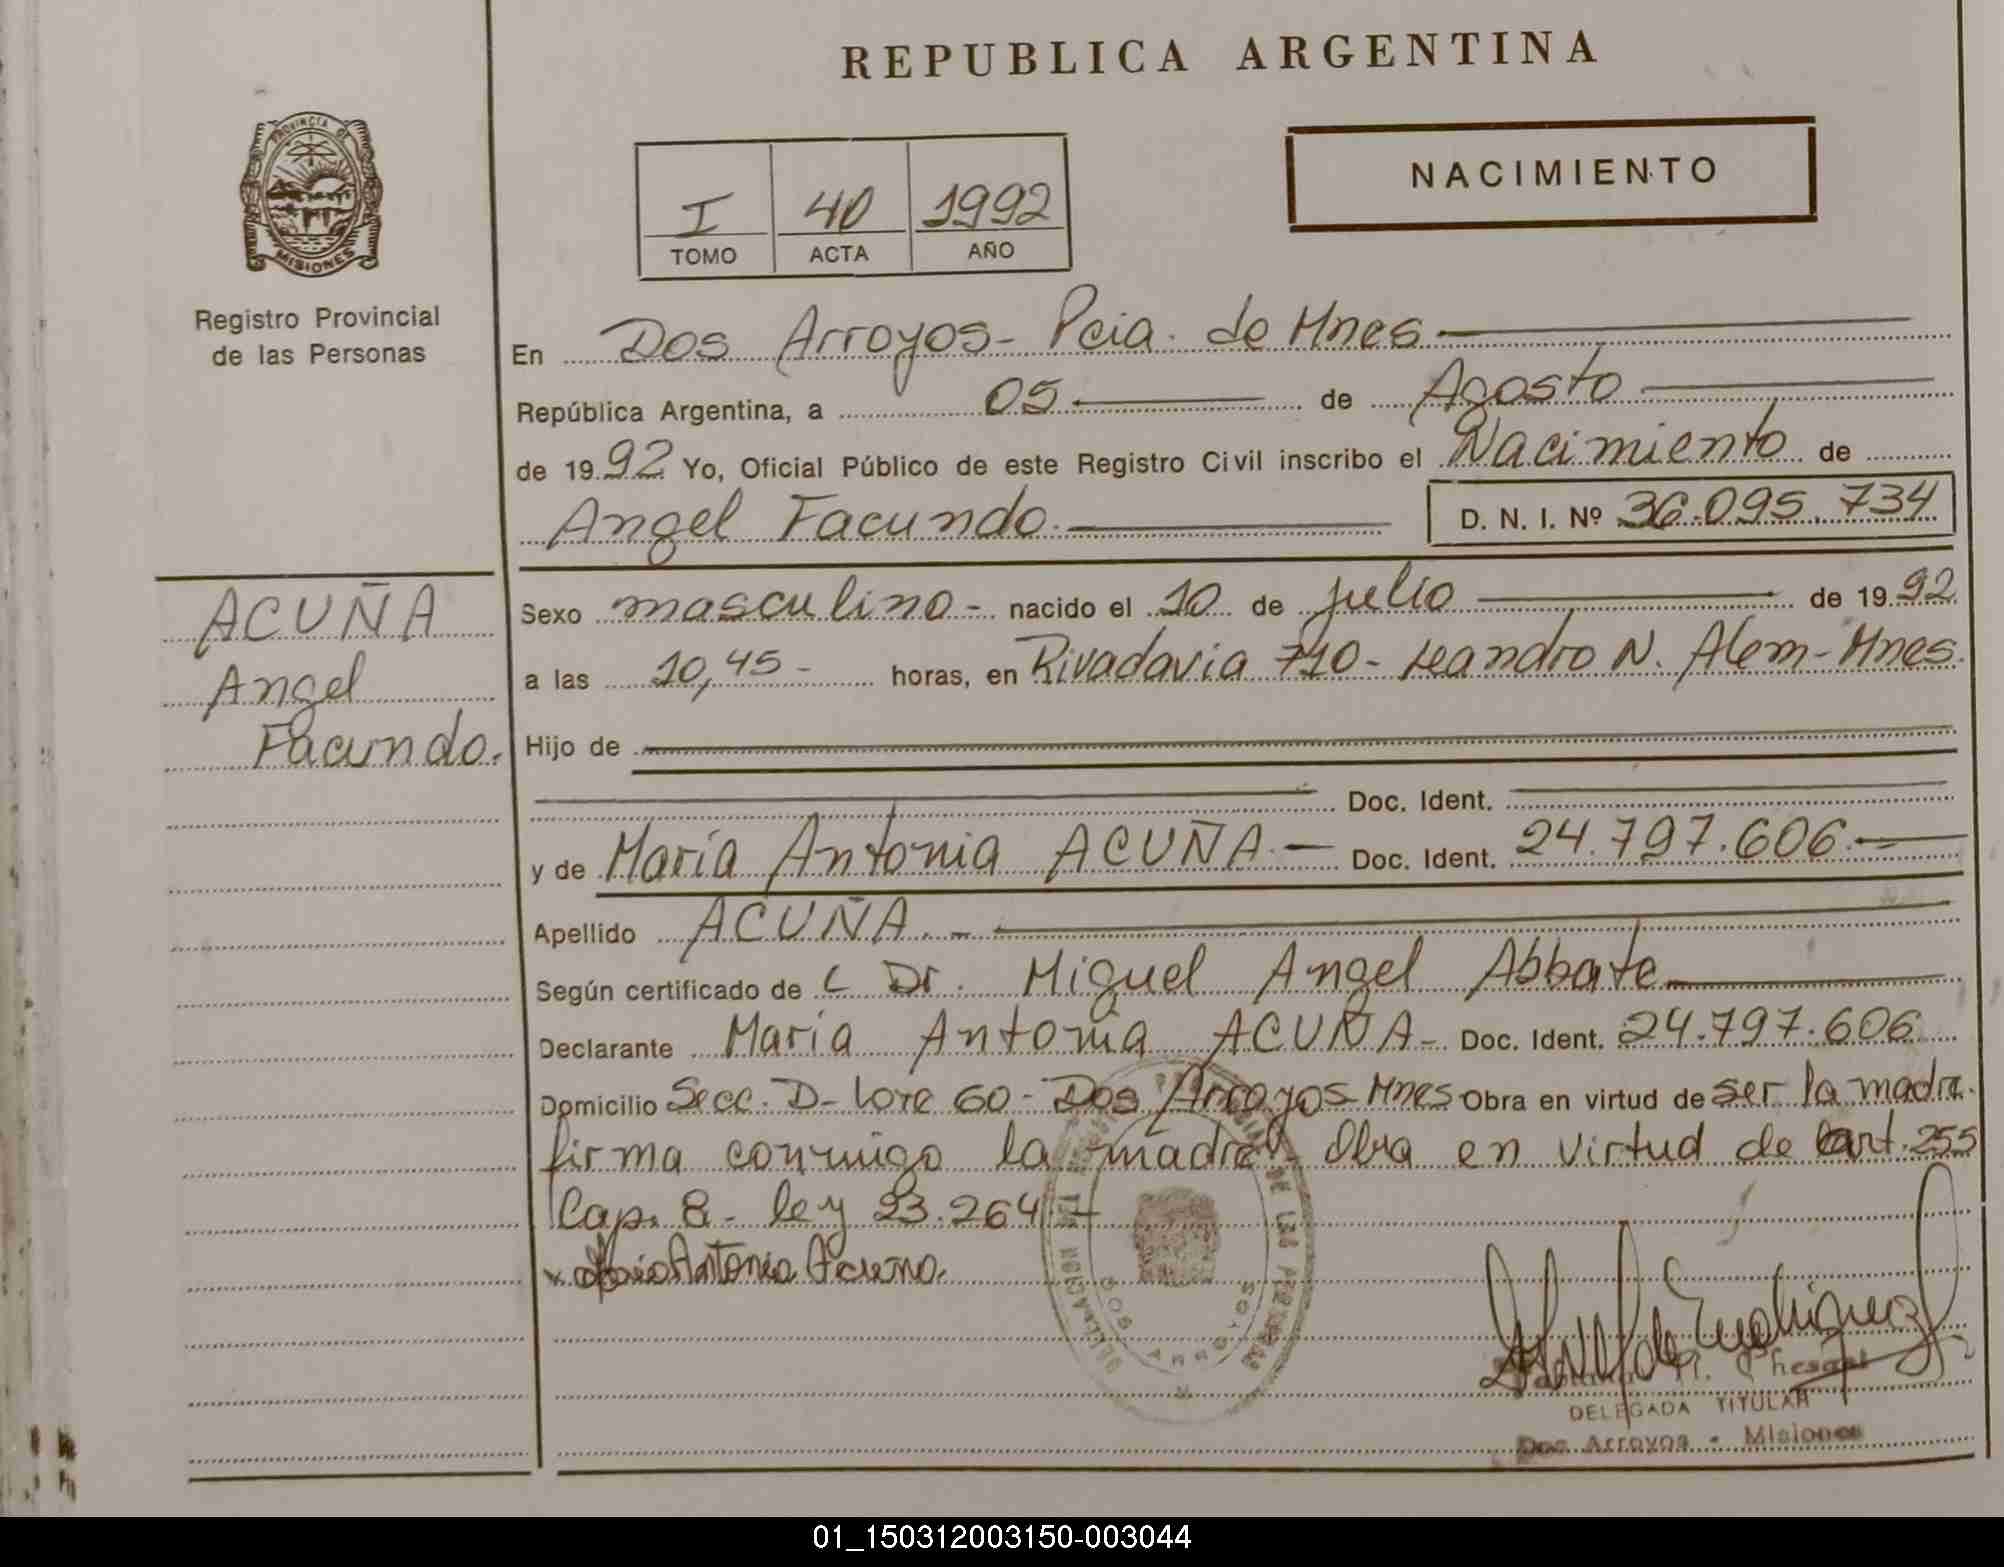 REPUBLICA ARGENTINA
PROVINCIA DE
MISIONES
Registro Provincial
de las Personas
I 40 1992
TOMO ACTA AÑO
NACIMIENTO
En Dos Arroyos - Pcia. de Mnes
República Argentina, a 05 de Agosto
de 1992 Yo, Oficial Público de este Registro Civil inscribo el Nacimiento de
Angel Facundo. D. N. I. Nº 36.095.734
ACUÑA
Angel
Facundo.
Sexo masculino - nacido el 10 de julio de 1992
a las 10,45 - horas, en Rivadavia 710 - Leandro N. Alem - Mnes.
Hijo de
Doc. Ident.
y de María Antonia ACUÑA - Doc. Ident. 24.797.606
Apellido ACUÑA. -
Según certificado de L Dr. Miguel Angel Abbate
Declarante María Antonia ACUÑA - Doc. Ident. 24.797.606
Domicilio Secc. D - Lote 60 - Dos Arroyos Mnes Obra en virtud de ser la madre.
firma conmigo la madre Obra en virtud de art. 255
Cap. 8 - ley 23.264
x Antonia Acuña.
DELEGACION
DOS ARROYOS
DELEGADA TITULAR
Dos Arroyos - Misiones
01_150312003150-003044